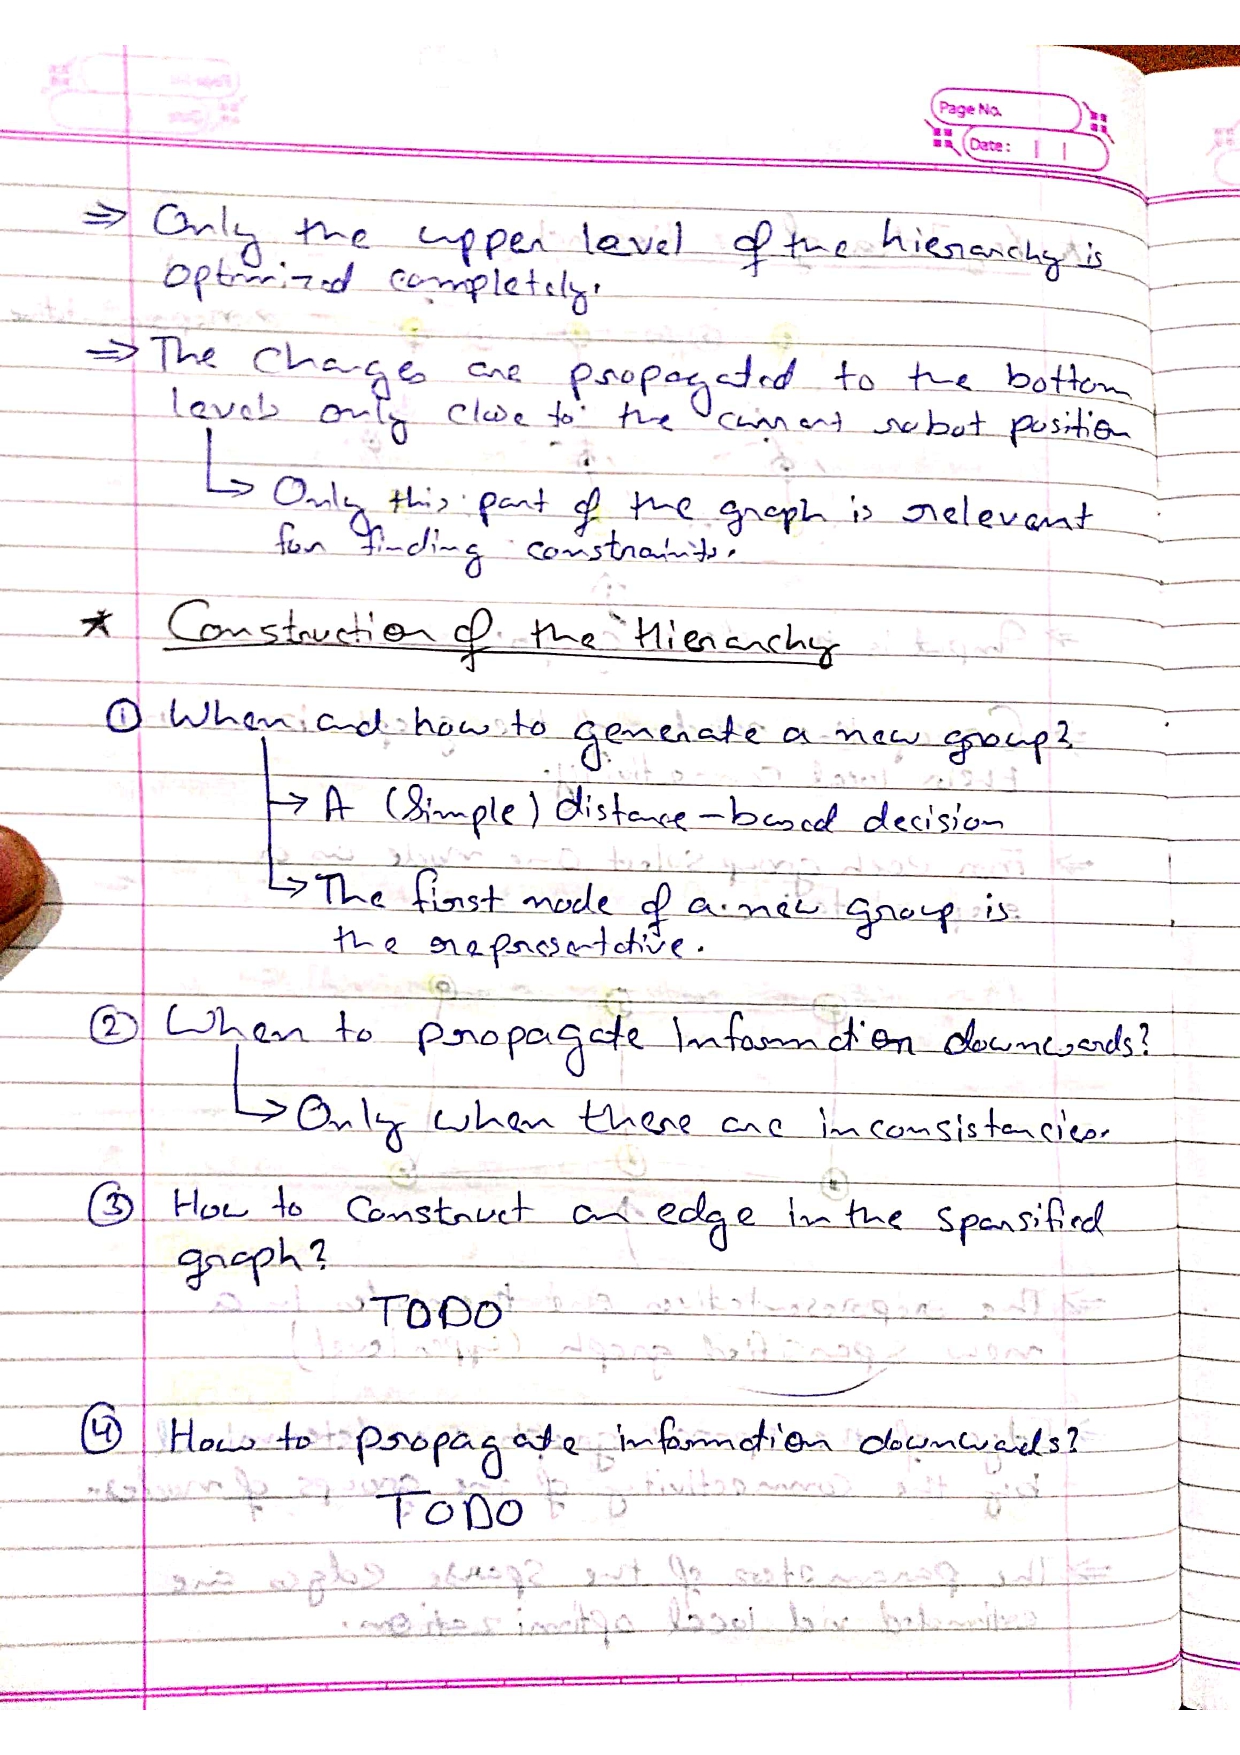 Page No.
Date:
⇒ Only the upper level of the hierarchy is
optimized completely.
⇒ The changes are propagated to the bottom
levels only close to the current robot position
↳ Only this part of the graph is relevant
for finding constraints.
* Construction of the Hierarchy
① When and how to generate a new group?
→ A (Simple) distance-based decision
↳ The first node of a new group is
the representative.
② When to propagate Information downwards?
↳ Only when there are inconsistencies.
③ How to Construct an edge in the sparsified
graph?
TODO
④ How to propagate information downwards?
TODO